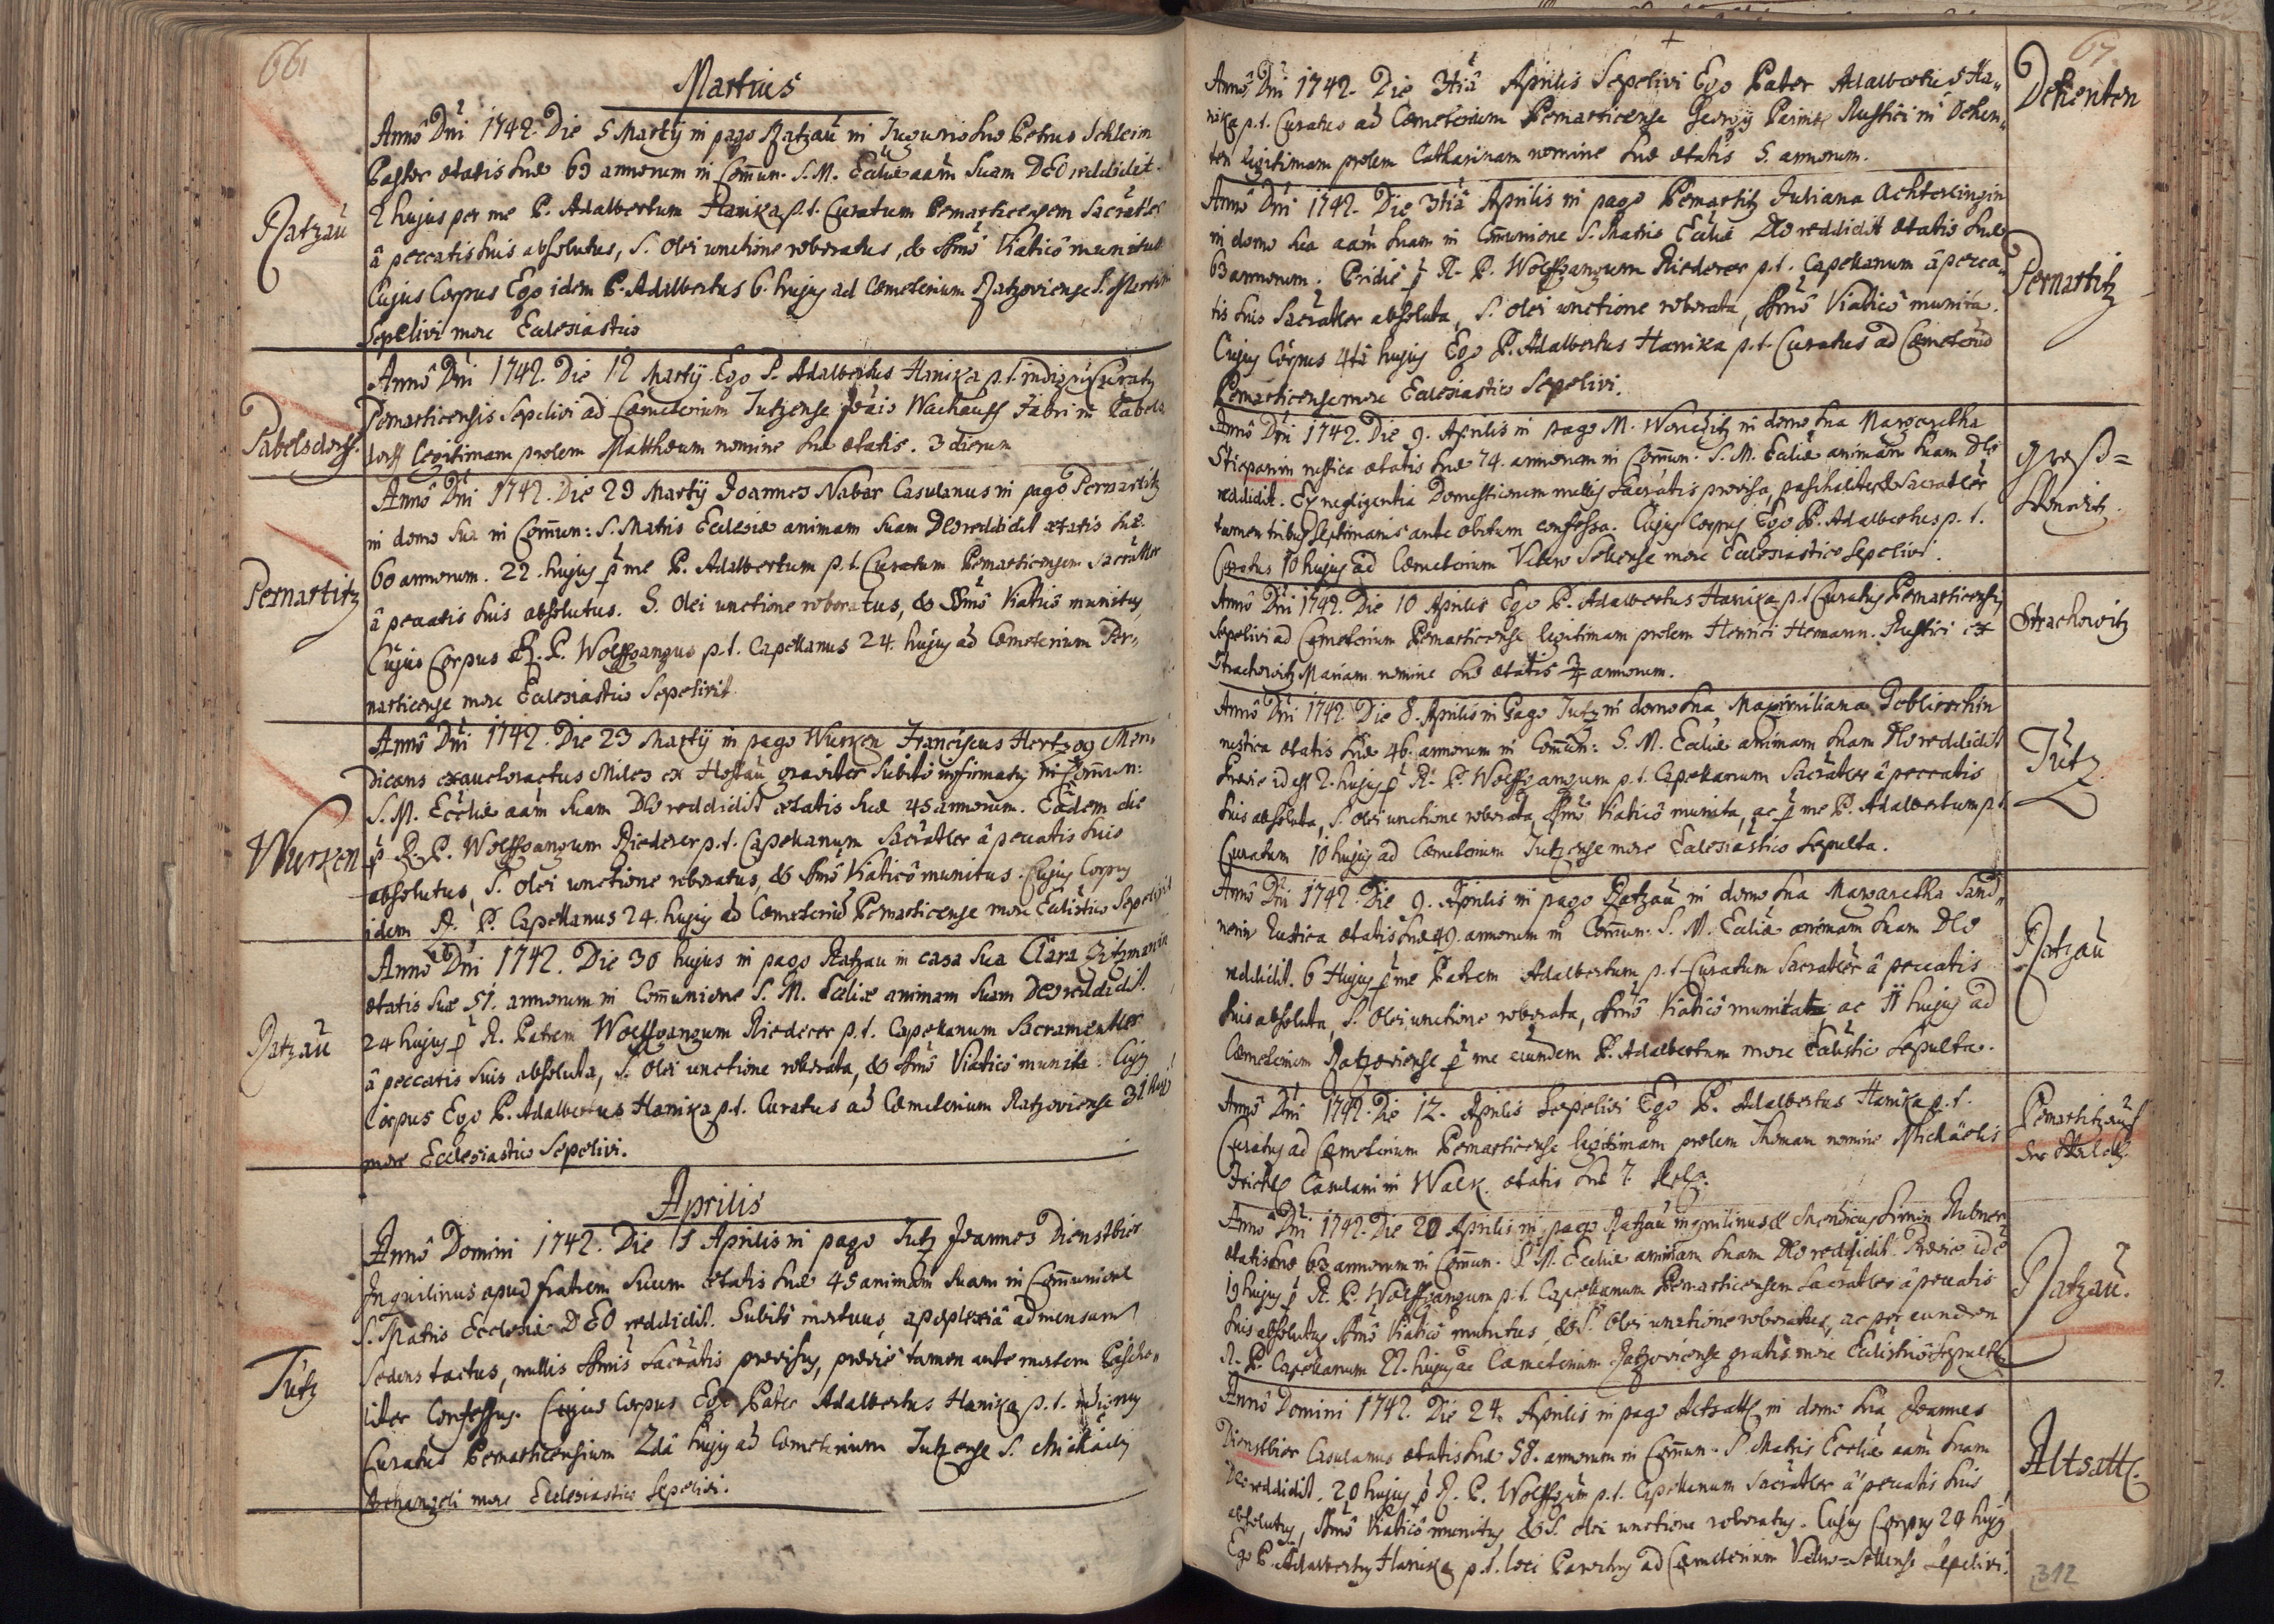 66
Martius
Ratzau
Annô Dni 1742. Die 5 Martÿ in pago Ratzau in Tugurio suo Petrus Schleim
Pastor ætatis suæ 63 annorum in Com̄un. S. M. Eccliæ aam̄ suam DEO reddidit.
2 hujus per me P. Adalbertum Hanika p.t. Curatum Pernarticensem Sacratler
â peccatis suis absolutus, S. Olei unctione roboratus, & Ssmô Viaticô munitus
Cujus Corpus Ego idem P. Adalbertus 6. hujus ad Cœmeterium Ratzoviense S.
Sepelivi more Ecclesiastico
Pabelsdorff.
Annô Dni 1742. Die 12 Martÿ Ego P. Adalbertus Hanika p.t. indignus Curatus
Pernarticensis Sepelivi ad Cœmeterium Jutzense Fabri in Pabels
dorff Legitimam prolem Matthæum nomine suæ ætatis. 3 dierum
Pernartitz
Annô Dni 1742. Die 23 Martÿ Joannes Nabar Casulanus in pagô Pernartitz
in domo sua in Com̄un: S. Matris Ecclesiæ animam suam Deo reddidit ætatis suæ
60 annorum. 22. hujus p me P. Adalbertum p.t. Curatum Pernarticensem Sacratler
â peccatis suis absolutus. S. Olei unctione roboratus, & SSmô Viaticô munitus,
Cujus Corpus R. P. Wolffgangus p.t. Capellanus 24. hujus ad Cœmeterium Per-
narticense more Ecclesiastico Sepelivit
Wurken
Annô Dni 1742. Die 23 Martÿ in pago Wurken Franciscus Hertzog Men-
dicans exauctoractus Miles ex Hostau graviter Subitô infirmatus in Com̄un:
S. M. Eccliæ aam̄ suam Deo reddidit ætatis suæ 45 annorum. Eâdem die
p R. P. Wolffgangum Riederer p.t. Capellanum Sacratler â peccatis suis
absolutus, S. Olei unctione roboratus, & Ssmô Viaticô munitus. Cujus Corpus
idem R. P. Capellanus 24. hujus ad Cœmeteriū Pernarticense more Ecclistico Sepelivit
Ratzau
Annô Dni 1742. Die 30 hujus in pago Ratzau in casa sua Clara Zitzmanin
ætatis suæ 51. annorum in Com̄unione S. M. Eccliæ animam suam Deo reddidit.
24 hujus p R. Patrem Wolffgangum Riederer p.t. Capellanum Sacramentler
â peccatis suis absoluta, S. Olei unctione roborata, & Ssmô Viaticô munita. Cujus
Corpus Ego P. Adalbertus Hanika p.t. Curatus ad Cœmeterium Ratzoviense 31 huj
more Ecclesiastico Sepelivi.
Aprilis
Tutz
Annô Domini 1742. Die 1 Aprilis in pago Tutz Joannes Dienstbier
Inquilinus apud fratrem Suum ætatis suæ 45 animam suam in Com̄unione
S. Matris Ecclesiæ DEO reddidit. Subitô mortuus, apoplexiâ ad mensam
sedens tactus, nullis Ssmis Sacratis provisus, prævie tamen ante mortem Pascha-
liter Confessus. Cujus Corpus Ego Pater Adalbertus Hanika p.t. indignus
Curatus Pernarticensium 2dâ hujus ad Cœmeterium Jutzense S. Michaëlis
Archangeli more Ecclesiastico Sepelivi.
67
Dehenten
Annô Dni 1742. Die 3tiâ Aprilis Sepelivi Ego Pater Adalbertus Ha-
nika p.t. Curatus ad Cœmeterium Pernarticense Georgÿ Rustici in Dehen-
ten legitimam prolem Catharinam nomine suæ ætatis 5. annorum.
Pernartitz
Annô Dni 1742. Die 3tiâ Aprilis in pago Pernartitz Juliana Achterlingin
in domo sua aam̄ suam in Com̄unione S. Matris Eccliæ Deo reddidit ætatis suæ
63 annorum. Pridie p R. P. Wolffgangum Riederer p.t. Capellanum â pecca-
tis suis Sacratler absoluta, S. Olei unctione roborata, Ssmô Viaticô munita.
Cujus Corpus 4tâ hujus Ego P. Adalbertus Hanika p.t. Curatus ad Cœmeteriū
Pernarticense more Ecclesiastico Sepelivi.
Groß=
Wonetitz.
Annô Dni 1742. Die 9. Aprilis in pago M. Wonetitz in domo sua Margaretha
Stiepanin rustica ætatis suæ 74. annorum in Com̄un. S. M. Eccliæ animam suam Deo
reddidit. Ex negligentia Domesticorum nullis Sacratis provisa, paschaliter & Sacratler
tamen tribus septimanis ante obitum confessa. Cujus Corpus Ego P. Adalbertus p.t.
Curatus 10 hujus ad Cœmeterium Vetero Sellense more Ecclesiastico Sepelivi.
Strachowitz
Annô Dni 1742. Die 10 Aprilis Ego P. Adalbertus Hanika p.t. Curatus Pernarticensis
Sepelivi ad Cœmeterium Pernarticense legitimam prolem Henrici Hemann. Rustici ex
Strachowitz Mariam nomine suæ ætatis annorum.
Tutz
Annô Dni 1742. Die 8. Aprilis in Pago Tutz in domo sua Maximiliana Goblirschin
rustica ætatis suæ 46. annorum in Com̄un: S. M. Eccliæ animam suam Deo reddidit
Prævie id est 2. hujus p R. P. Wolffgangum p.t. Capellanum Sacratler â peccatis
suis absoluta, S. Olei unctione roborata, Ssmô Viaticô munita, ac p me P. Adalbertum p.t.
Curatum 10 hujus ad Cœmeterium Jutzense more Ecclesiastico sepulta.
Ratzau
Annô Dni 1742. Die 9. Aprilis in pago Ratzau in domo sua Margaretha Sand-
nerin Rustica ætatis suæ 49. annorum in Com̄un. S. M. Eccliæ animam suam Deo
reddidit. 6 Hujus p me Patrem Adalbertum p.t. Curatum Sacratler â peccatis
suis absoluta, S. Olei unctione roborata, Ssmô Viaticô munita ac 11 hujus ad
Cœmeterium Ratzoviense p me eundem P. Adalbertum more Ecclistico sepulta.
Pernartitz auf
der Walck.
Annô Dni 1742. Die 12. Aprilis Sepelivi Ego P. Adalbertus Hanika p.t.
Curatus ad Cœmeterium Pernarticense legitimam prolem Thomam nomine Michaëlis
Casulani in Walk. ætatis suæ 7.
Ratzau.
Annô Dni 1742. Die 20 Aprilis in pago Ratzau inquilinus & Mendicus Simon Rubner
ætatis suæ 63 annorum in Com̄un. S. M. Eccliæ animam suam Deo reddidit. Prævie id ē
19 hujus p R. P. Wolffgangum p.t. Capellanum Pernarticensem Sacratler â peccatis
suis absolutus Ssmô Viaticô munitus, & S. Olei unctione roboratus, ac per eundem
R. P. Capellanum 22. hujus ac Cœmeterium Ratzoviense gratis more Ecclisticô
Altsattl.
Annô Domini 1742. Die 24. Aprilis in pago Altsattl in domo sua Joannes
Dienstbier Casulanus ætatis suæ 58. annorum in Com̄un. S. Matris Eccliæ aam̄ suam
Deo reddidit. 20 hujus p R. P. Wolffgum p.t. Capellanum Sacratler â peccatis suis
absolutus, Ssmô Viaticô munitus & S. Olei unctione roboratus. Cujus Corpus 24 hujus
Ego P. Adalbertus Hanika p.t. loci Parochus ad Cœmeterium Vetero=Sellense Sepelivi.
312